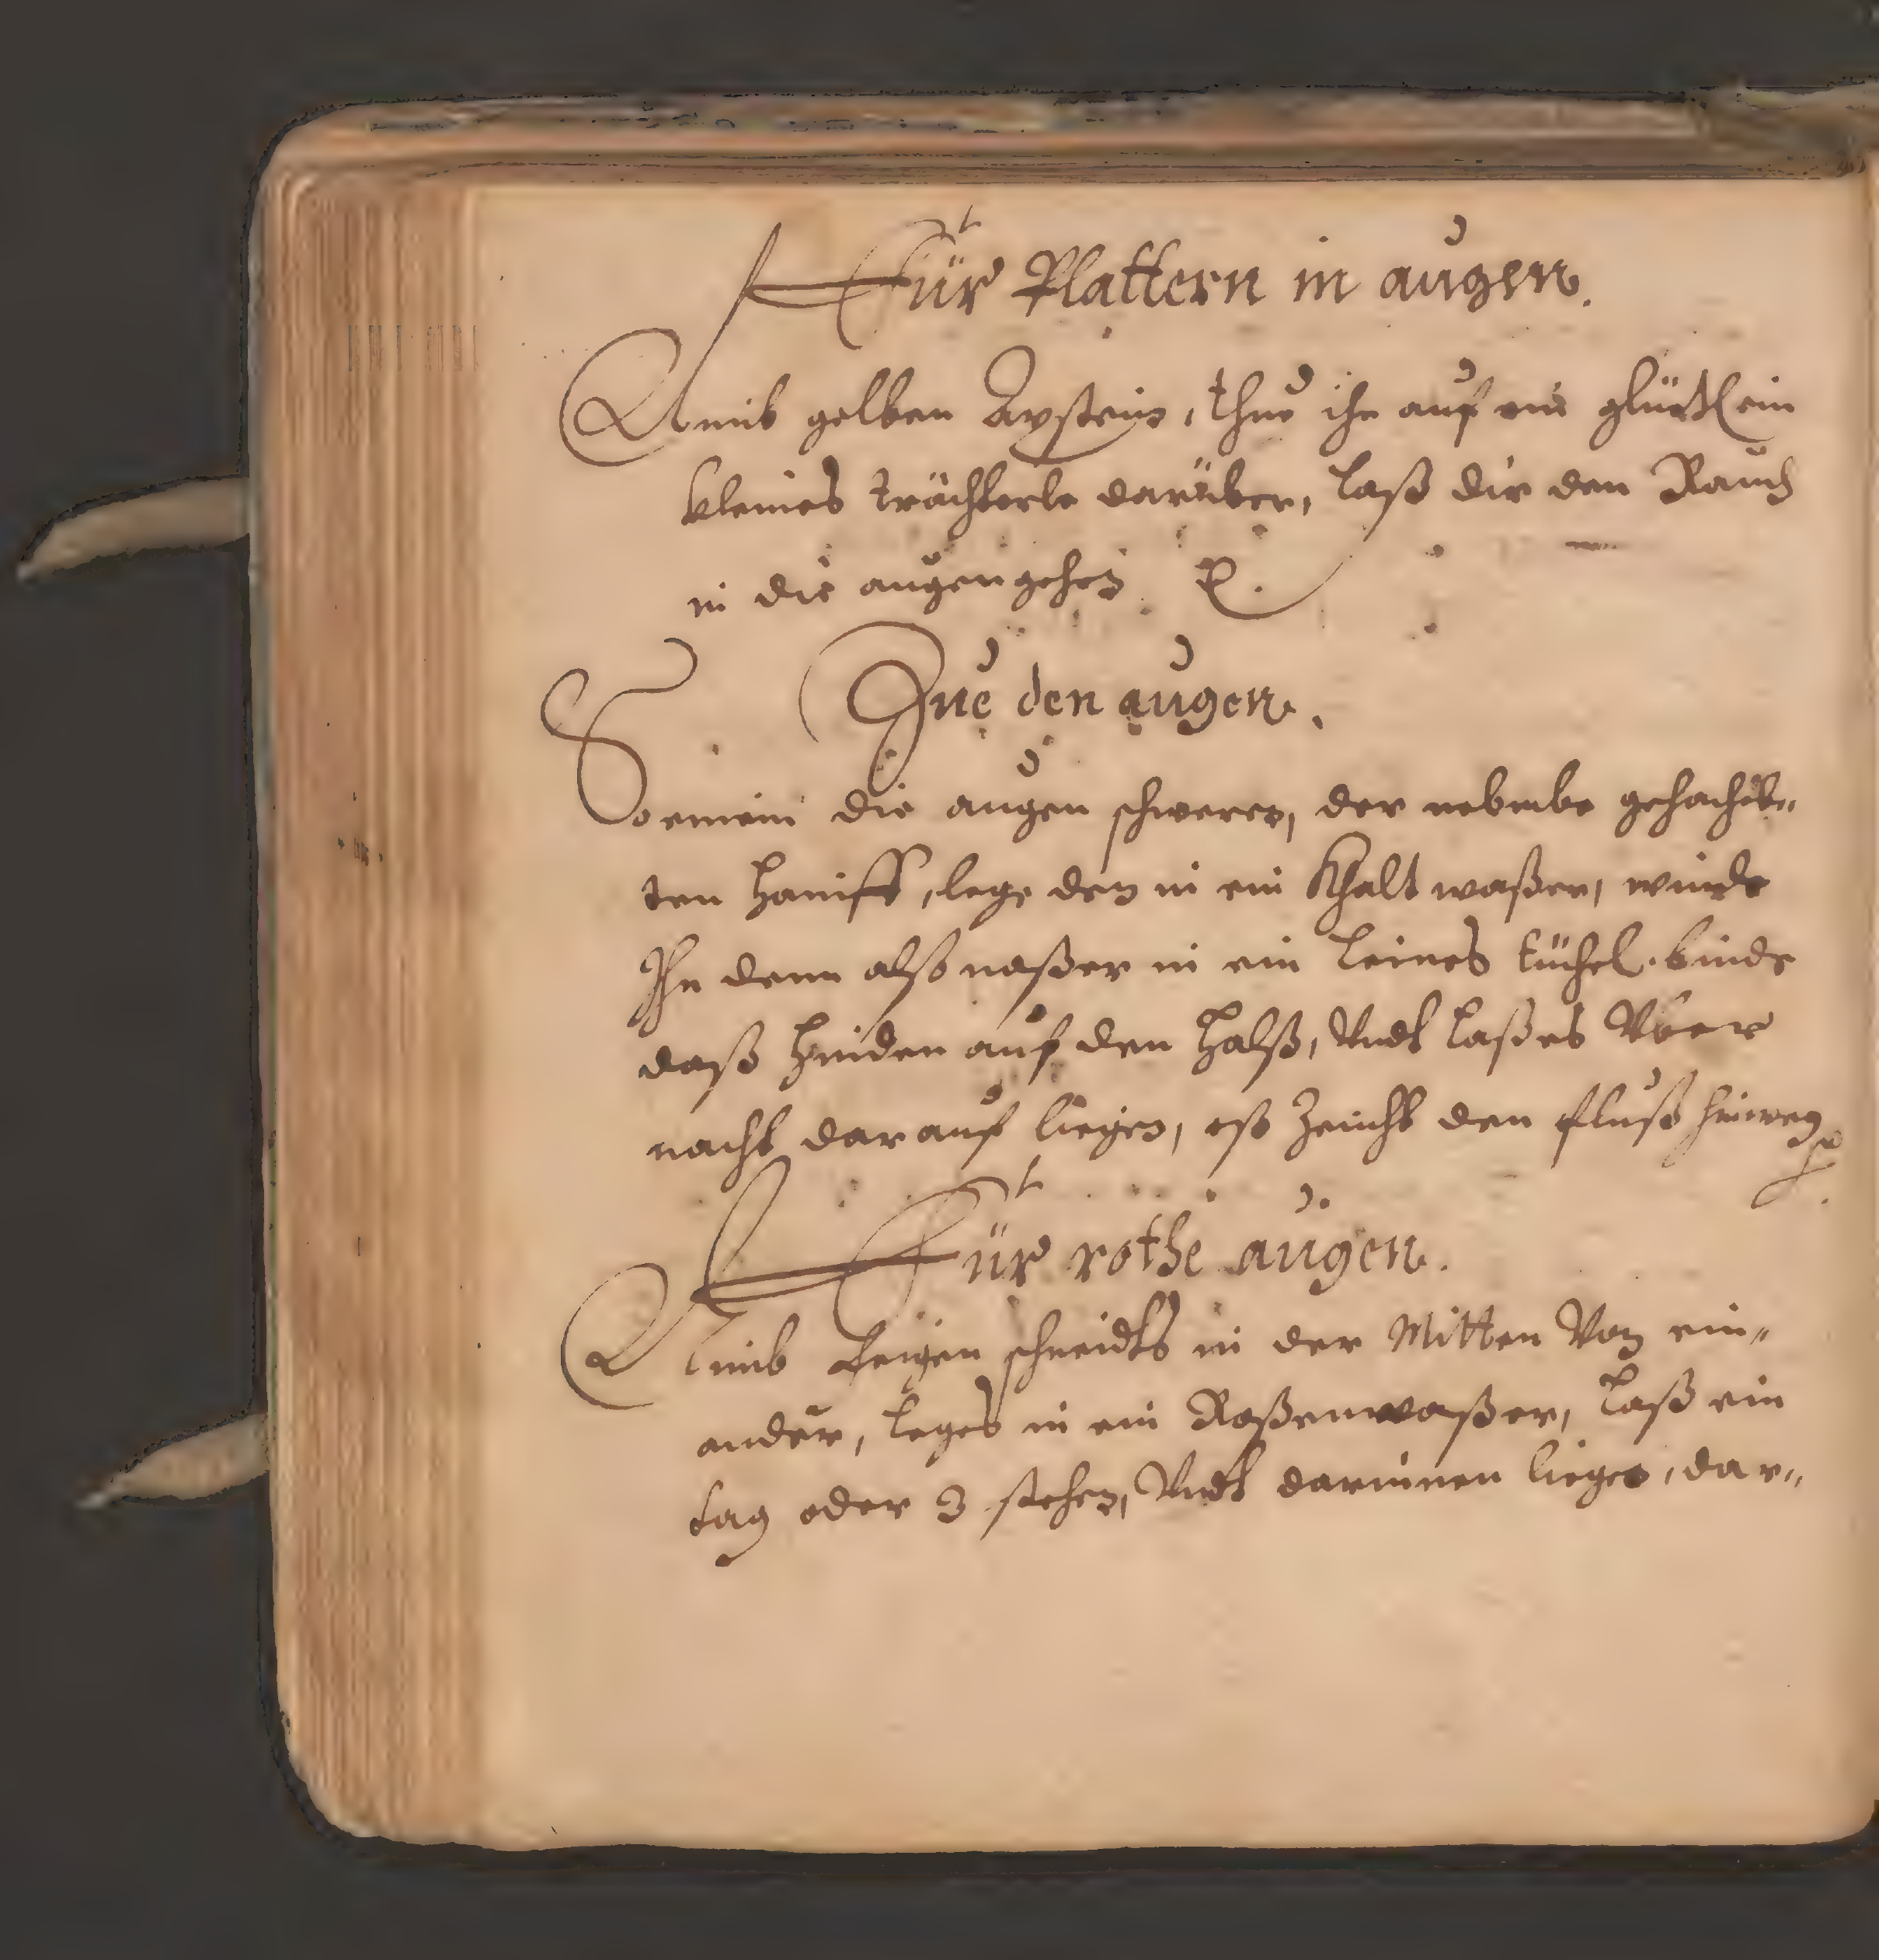 Für Plattern in augen.
Nimb gelben Aystein, thue ihn auf ein glüetl ein
kleines trächterle darüber, laß dir den Rauch
in die augen gehen
Zue den augen.
So einem die augen schweren, der neb
ten Haniff, lege den in ein Khalt waßer, winde
Ihn denn also naßer in ein leines tüchel. binde
daß hinden auf den Halß, Vndt laß es Vber
nacht darauf liegen, esß Zeicht den fluß hinweg
Für rothe augen.
Nimb feigen schneidts in der Mitten Von ein-
ander, leges in ein Roßenwaßer, laß ein
tag oder 3 stehen, Vndt darinnen liegen, dar-